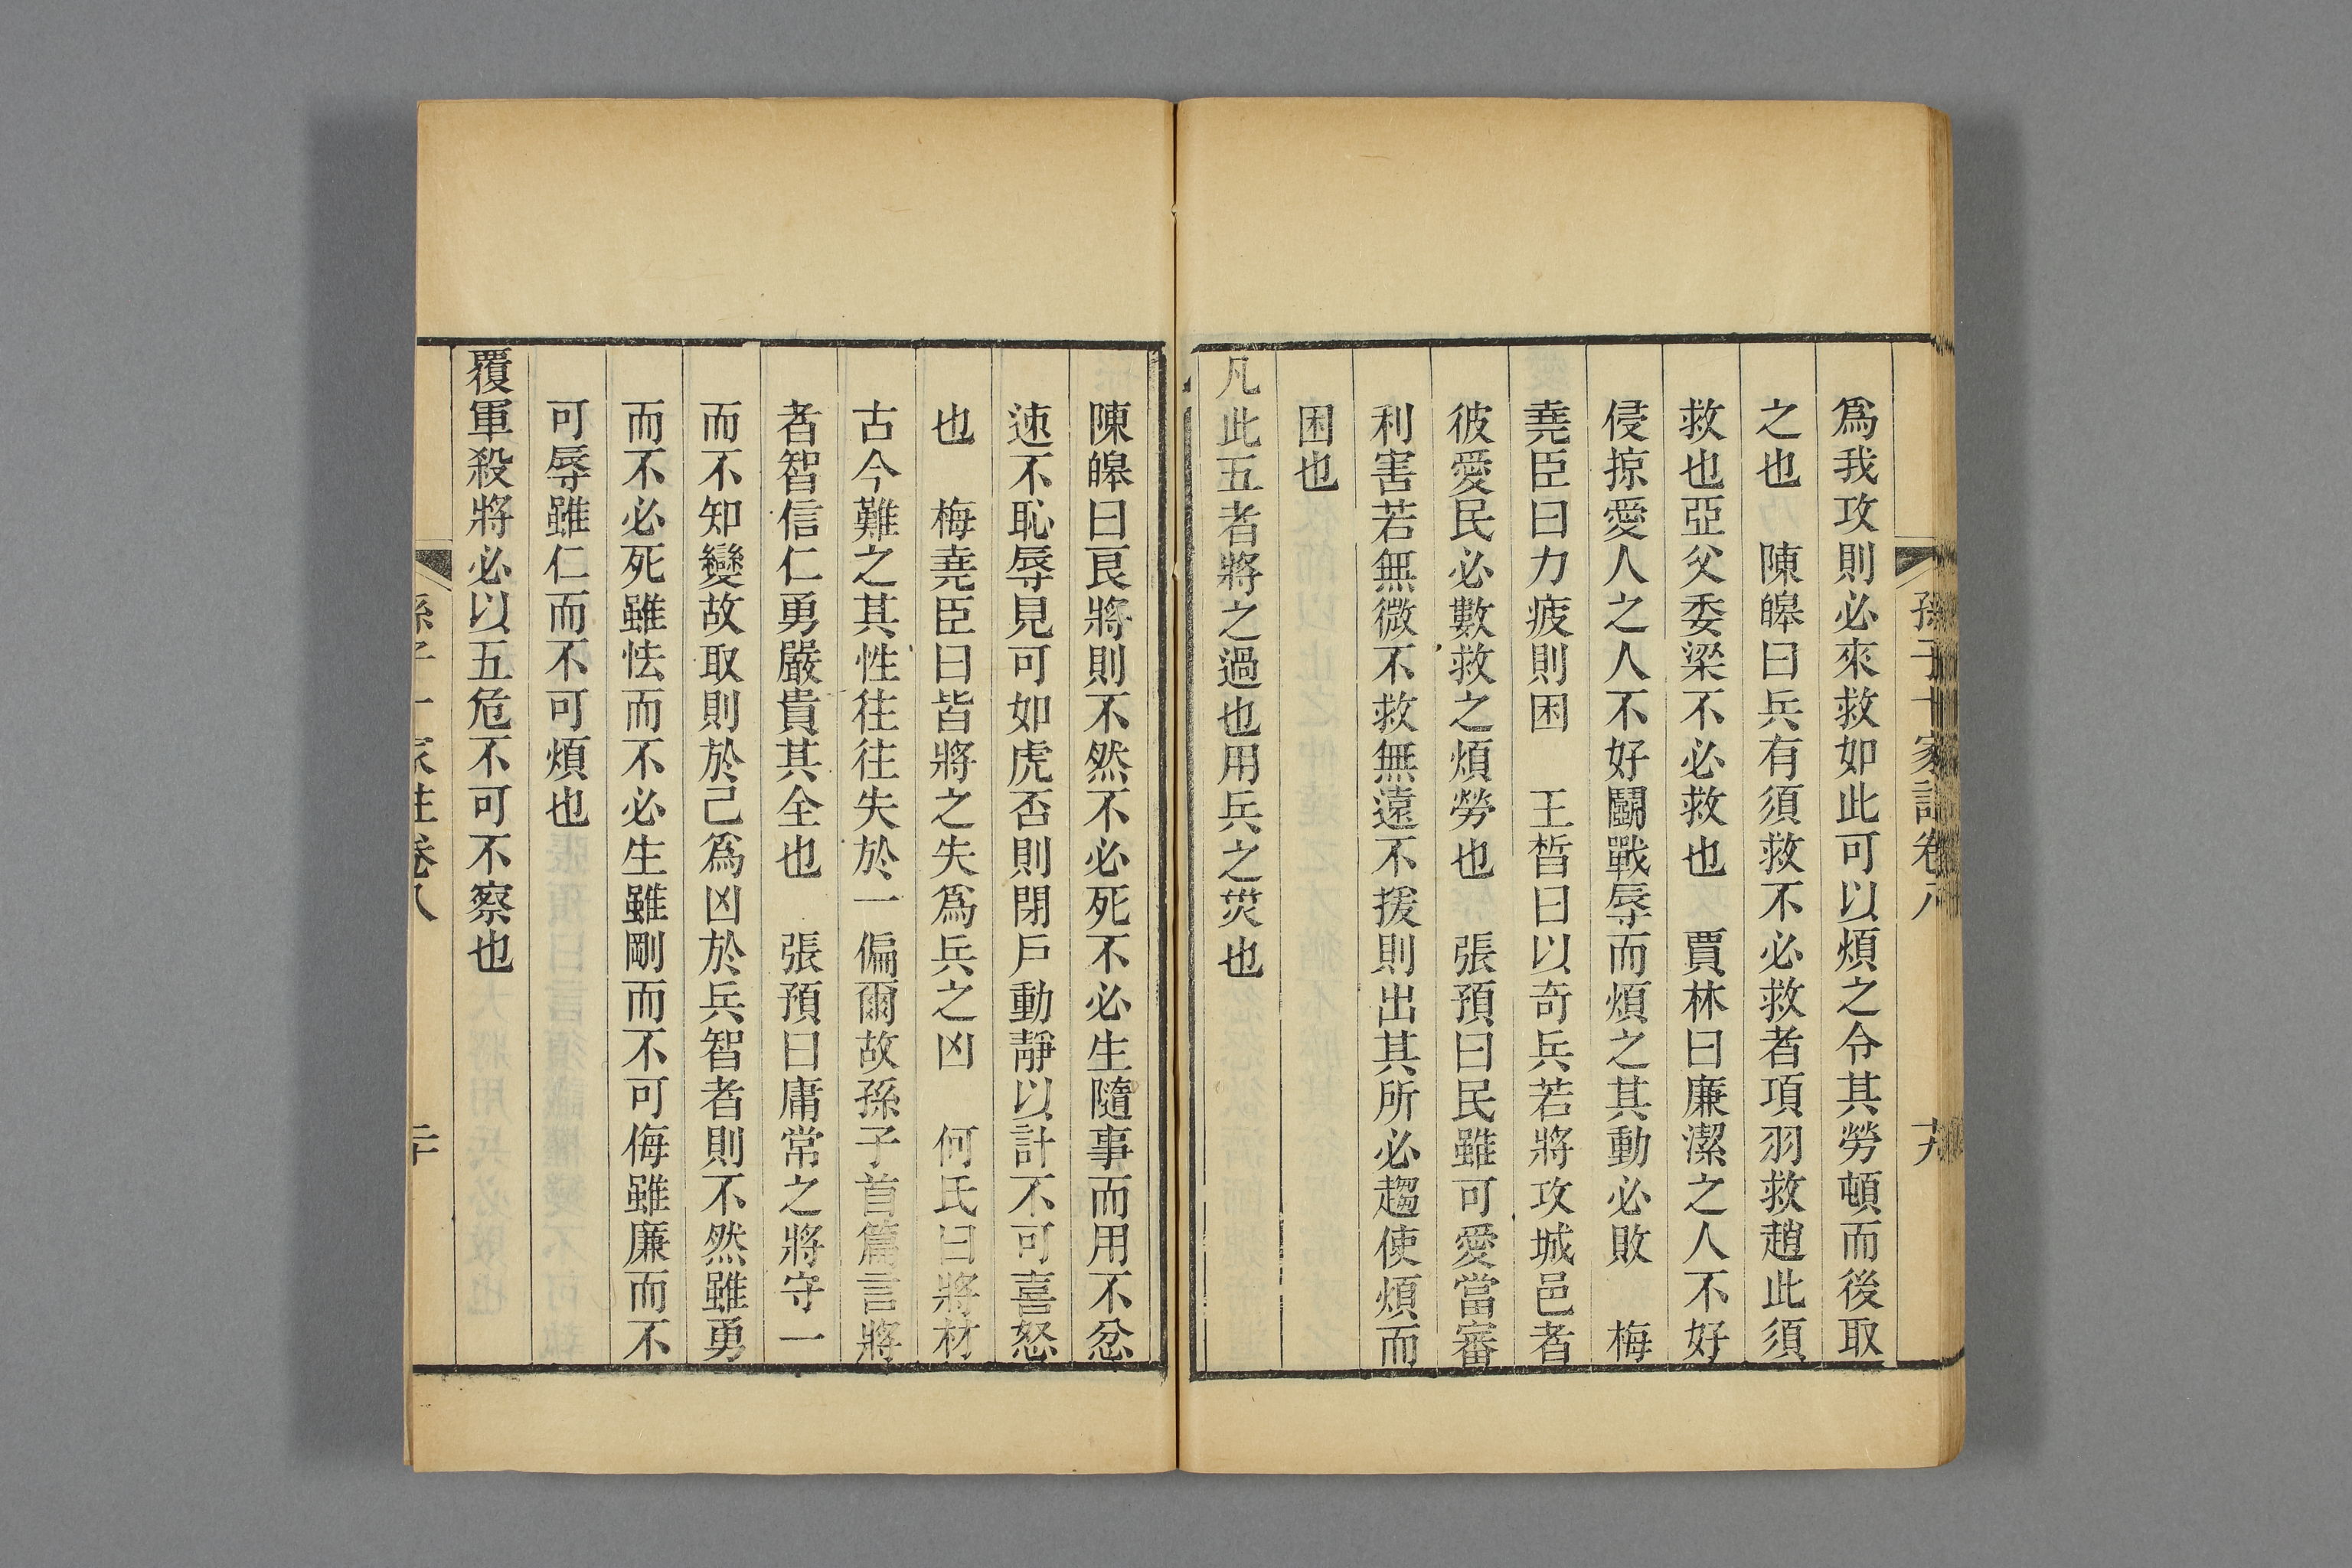 孫子十家註卷八 十九
爲我攻則必來救如此可以煩之令其勞頓而後取
之也 陳皥曰兵有須救不必救者項羽救趙此須
救也亞父委梁不必救也 賈林曰廉潔之人不好
侵掠愛人之人不好鬭戰辱而煩之其動必敗 梅
堯臣曰力疲則困 王晳曰以奇兵若將攻城邑者
彼愛民必數救之煩勞也 張預曰民雖可愛當審
利害若無微不救無遠不援則出其所必趨使煩而
困也
凡此五者將之過也用兵之災也
陳皥曰良將則不然不必死不必生隨事而用不忿
速不恥辱見可如虎否則閉戶動靜以計不可喜怒
也 梅堯臣曰皆將之失爲兵之凶 何氏曰將材
古今難之其性往往失於一偏爾故孫子首篇言將
者智信仁勇嚴貴其全也 張預曰庸常之將守一
而不知變故取則於己爲凶於兵智者則不然雖勇
而不必死雖怯而不必生雖剛而不可侮雖廉而不
可辱雖仁而不可煩也
覆軍殺將必以五危不可不察也
孫子十家註卷八 二十